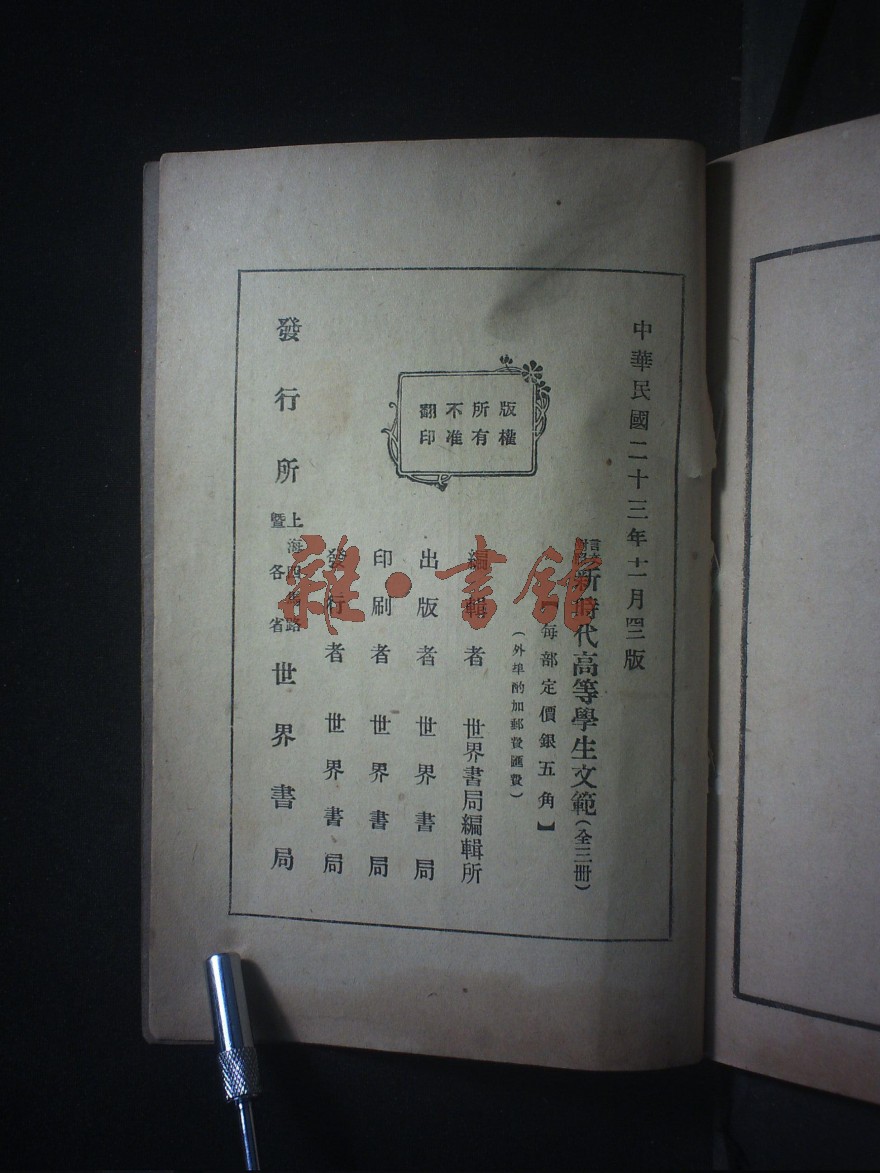 中華民國二十三年十一月四版
新時代高等學生文範(全三冊)
【每部定價銀五角】
(外埠酌加郵費匯費)
版權
所有
不准
翻印
編輯者 世界書局編輯所
出版者 世界書局
印刷者 世界書局
發行者 世界書局
發行所 上海四馬路 暨各省 世界書局
雜·書館